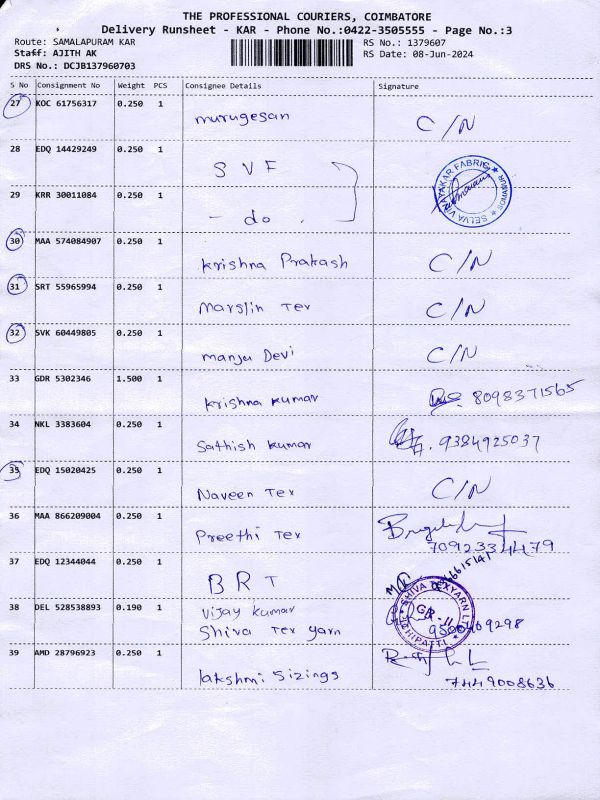 THE PROFESSIONAL COURIERS, COIMBATORE
Delivery Runsheet - KAR - Phone No.:0422-3505555 - Page No.:3
Route: SAMALAPURAM KAR
Staff: AJITH AK
DRS No.: DCJB137960703
RS No.: 1379607
RS Date: 08-Jun-2024
S No Consignment No Weight PCS Consignee Details Signature
27 KOC 61756317 0.250 1 murugesan C/N
28 EDQ 14429249 0.250 1 SVF
SELVA VINAYAKAR FABRIC SOMANUR
29 KRR 30011084 0.250 1 - do .
30 MAA 574084907 0.250 1 krishna Prakash C/N
31 SRT 55965994 0.250 1 Marslin Tex C/N
32 SVK 60449805 0.250 1 manju Devi C/N
33 GDR 5302346 1.500 1 krishna kumar 8098371565
34 NKL 3383604 0.250 1 Sathish kumar 9384925037
35 EDQ 15020425 0.250 1 Naveen Tex C/N
36 MAA 866209004 0.250 1 Preethi Tex 7092334479
37 EDQ 12344044 0.250 1 BRT
38 DEL 528538893 0.190 1 Vijay kumar
Shiva Tex yarn
SHIVA TEXYARN LTD
39 AMD 28796923 0.250 1 lakshmi Sizings
7449008636